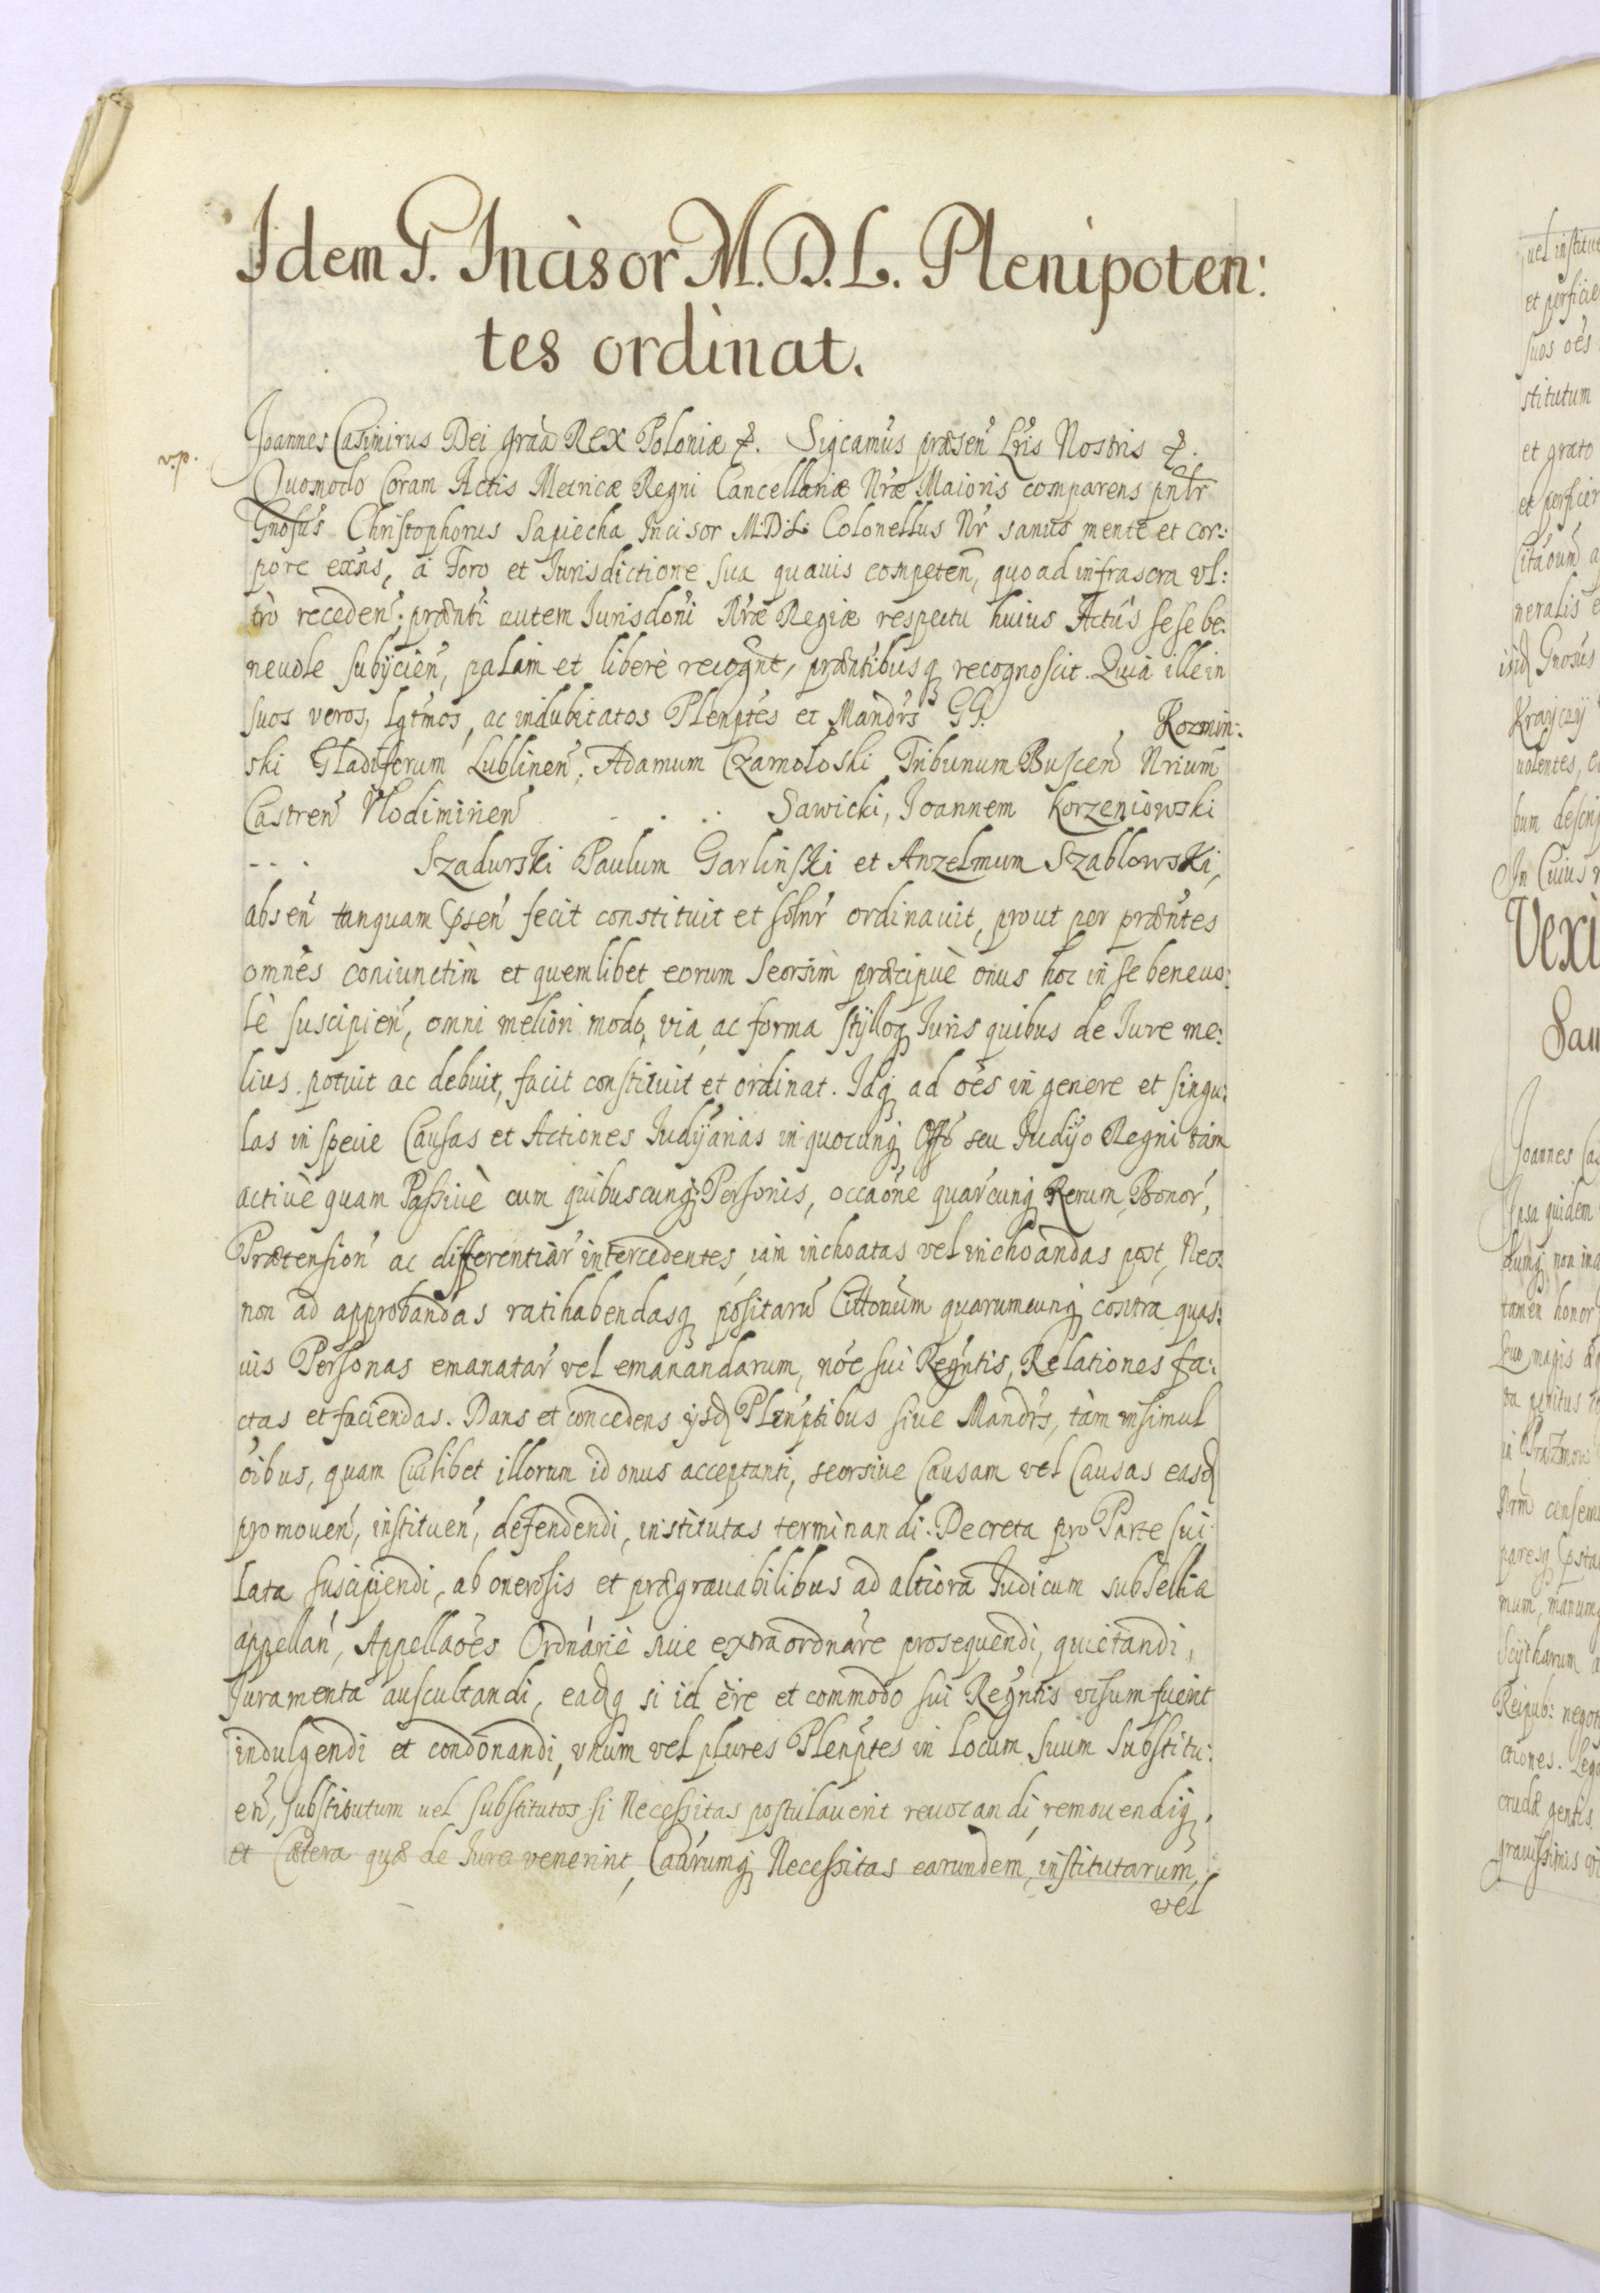 Idem G. Incisor M.D.L. Plenipoten:
tes ordinat.
Joannes Casimirus Dei graã Rex Poloniæ &. Sigcamus præsen Lris Nostris &.
v.p.
Quomodo Coram Actis Metricæ Regni Cancellariæ Nræ Maioris comparens pntr
Gnosus Christophorus Sapiecha Incisor M.D.L. Colonellus Nr sanus mente et cor:
pore exns, à Foro et Jurisdictione sua quauis competen, quo ad infrascra vl:
trò receden; prænti autem Jurisdoni Nræ Regiæ respectu huius Actûs sese be:
neuole subÿcien, palam et liberè recognt, præntibusq recognoscit. Quià ille in
suos veros, lgtmos, ac indubitatos Plenptes et Mandrs GG. Kozmin:
ski Gladiferum Lublinen, Adamum Czarnoloski Tribunum Buscen Nrium
Castren Vlodimirien . . . Sawicki, Joannem Korzeniowski
- - . Szadurski Paulum Garlinski et Anzelmum Szablowski,
absen tanquam psen fecit constituit et solnr ordinauit, prout per præntes
omnes coniunctìm et quemlibet eorum seorsim præcipuè onus hoc in se beneuo:
lè suscipien, omni meliori modo, via, ac forma stylloq Juris quibus de Jure me:
lius potuit ac debuit, facit constituit et ordinat. Idq ad oes in genere et singu:
las in specie Causas et Actiones Judÿarias in quocunq Offo seu Judÿo Regni tàm
actiuè quam Passiuè cum quibuscunq Personis, occaone quarcunq Rerum, Bonor,
Prætension ac differentiar intercedentes, iam inchoatas vel inchoandas post, Nec:
non ad approbandas ratihabendasq positaru Cittonum quarumcunq contra quas:
uis Personas emanatar vel emanandarum, noe sui Regntis, Relationes fa:
ctas et faciendas. Dans et concedens ÿsd Plenptibus siue Mandrs, tàm insimul
oibus, quam Cuilibet illorum id onus acceptanti, seorsiue Causam vel Causas easd
promouen, instituen, defendendi, institutas terminandi. Decreta pro Parte sui
lata suscipiendi, ab onerosis et prægrauabilibus ad altiora Judicum subsellia
appellan, Appellaoes Ordnariè siue extraordnare prosequendi, quietandi,
Juramenta auscultandi, eadq si id ère et commodo sui Regntis visum fuerit
indulgendi et condonandi, vnum vel plures Plenptes in locum suum substitu:
en, substitutum uel substitutos si Necessitas postulauerit reuocandi, remouendiq,
et Cætera quæ de Jure venerint, Caarumq Necessitas earundem, institutarum,
vel